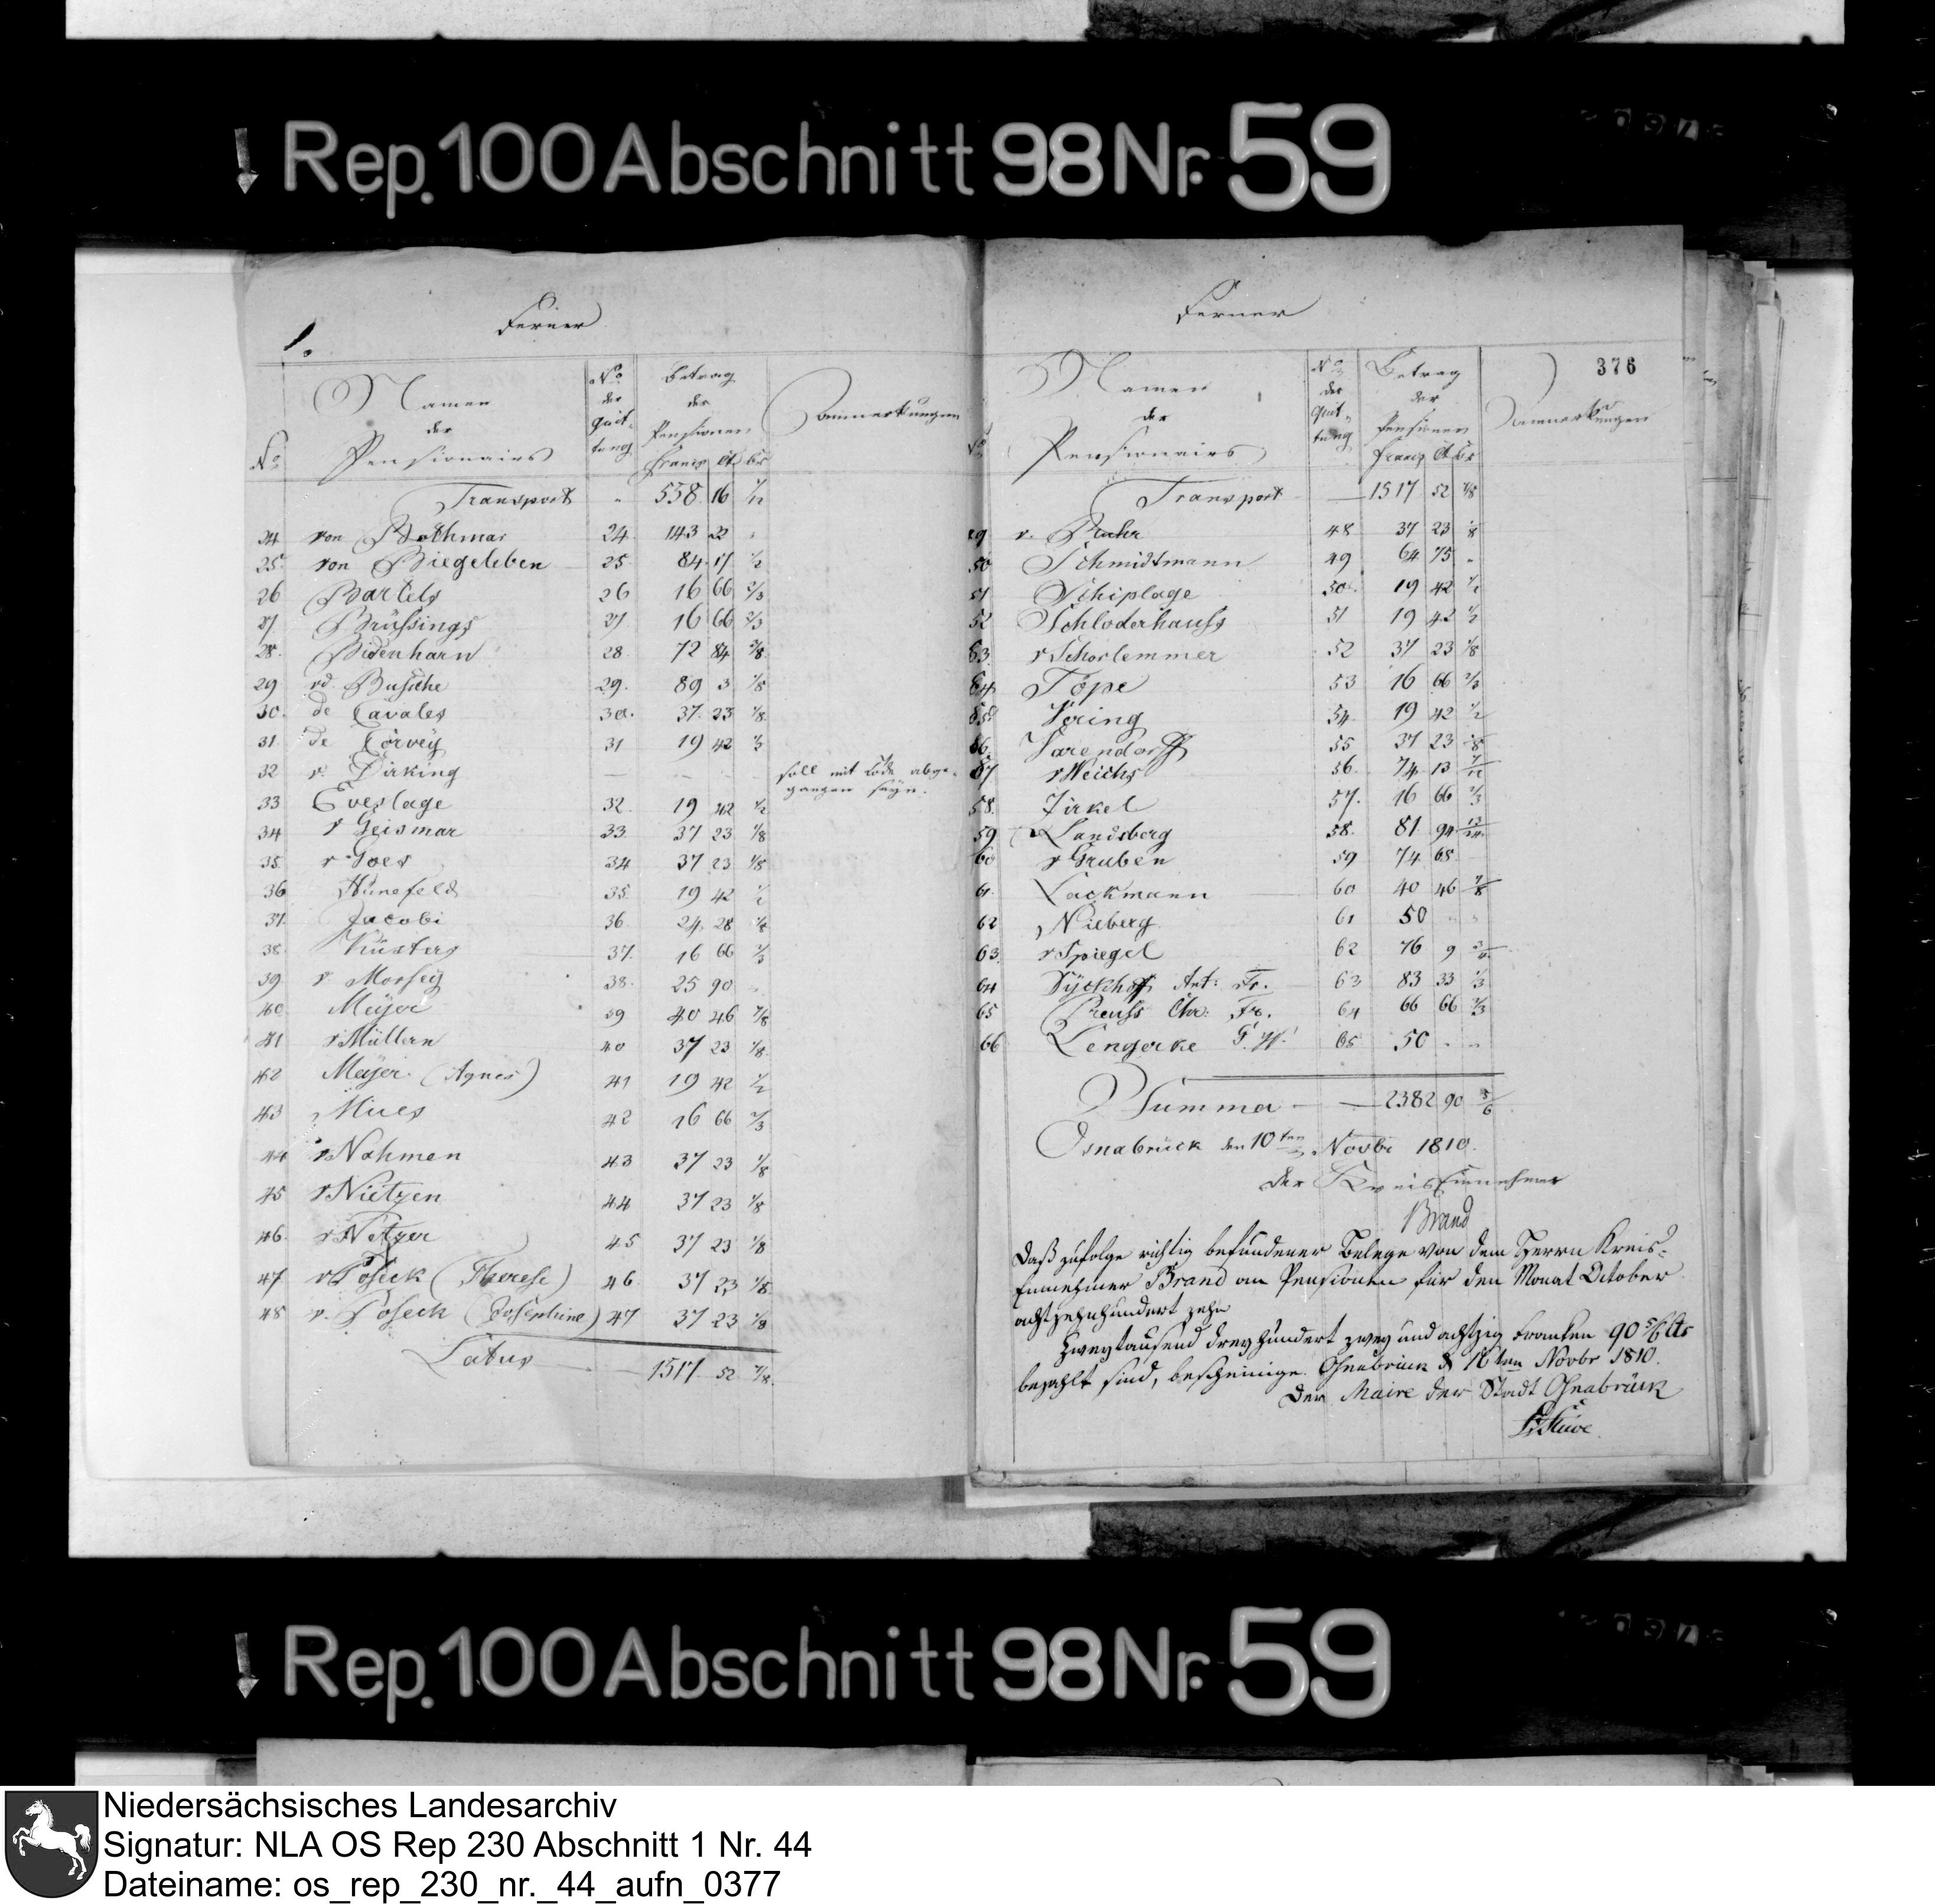 Rep. 100 Abschnitt 98 Nr. 59
1. Ferner
No Namen der Pensionairs No der Quittung Betrag der Pensionen Francs Ct br Anmerkungen
Transport " 558 16 1/12
24 von Bothmar 24 143 22 "
25 von Biegeleben 25 84 17 1/2
26 Bartels 26 16 66 2/3
27 Brüssings 27 16 66 2/3
28 Bidenharn 28 72 84 3/8
29 vd. Busche 29 89 3 1/8
30 de Cavales 30 37 23 1/8
31 de Corvey 31 19 42 1/2
32 v. Dirking — — — soll mit Tode abge-
gangen seyn.
33 Everlage 32 19 42 1/2
34 v Geismar 33 37 23 1/8
35 v Goes 34 37 23 1/8
36 Hünefeld 35 19 42 1/2
37 Jacobi 36 24 28 1/8
38 Küsters 37 16 66 2/3
39 v Morsey 38 25 90 "
40 Meyer 39 40 46 7/8
41 v Müllern 40 37 23 1/8
42 Meyer (Agnes) 41 19 42 1/2
43 Mues 42 16 66 2/3
44 v Nahmen 43 37 23 1/8
45 v Nietzen 44 37 23 1/8
46 v Netzer 45 37 23 1/8
47 v Poseck (Therese) 46 37 23 1/8
48 v. Poseck (Josephine) 47 37 23 1/8
Latus — 1517 52 7/8
Ferner
376
No Namen der Pensionairs No der Quittung Betrag der Pensionen Francs Ct br Anmerkungen
Transport — 1517 52 7/8
49 v. Ruhr 48 37 23 1/8
50 Schmidtmann 49 64 75 "
51 Schiplage 50 19 42 1/2
52 Schloderhauss 51 19 42 1/2
53 v Schorlemmer 52 37 23 1/8
54 Töpe 53 16 66 2/3
55 Vering 54 19 42 1/2
56 Varendorff 55 37 23 1/8
57 v Weichs 56 74 13 7/12
58 Zirkel 57 16 66 2/3
59 v Landsberg 58 81 94 13/24
60 v Gruben 59 74 68
61 Lackmann 60 40 46 7/8
62 Nieberg 61 50 " "
63 v Spiegel 62 76 9 3/4
64 Dyckhoff Ant: Fr. 63 83 33 1/3
65 Preuss Chr: Fr. 64 66 66 2/3
66 Lengerke G. W. 65 50 " "
Summa — 2382 90 5/6
Osnabrück den 10ten Novbr 1810.
der Kreis Einnehmer
Brand
Daß zufolge richtig befundener Belege von dem Herrn Kreis-
Einnehmer Brand an Pensionen für den Monat October
achtzehnhundert zehn
Zweytausend dreyhundert zwey und achtzig Franken 90 5/6 Cts
bezahlt sind, bescheinige. Osnabrück d 16ten Novbr 1810.
Der Maire der Stadt Osnabrück
Stüve
Rep. 100 Abschnitt 98 Nr. 59
Niedersächsisches Landesarchiv
Signatur: NLA OS Rep 230 Abschnitt 1 Nr. 44
Dateiname: os_rep_230_nr._44_aufn_0377